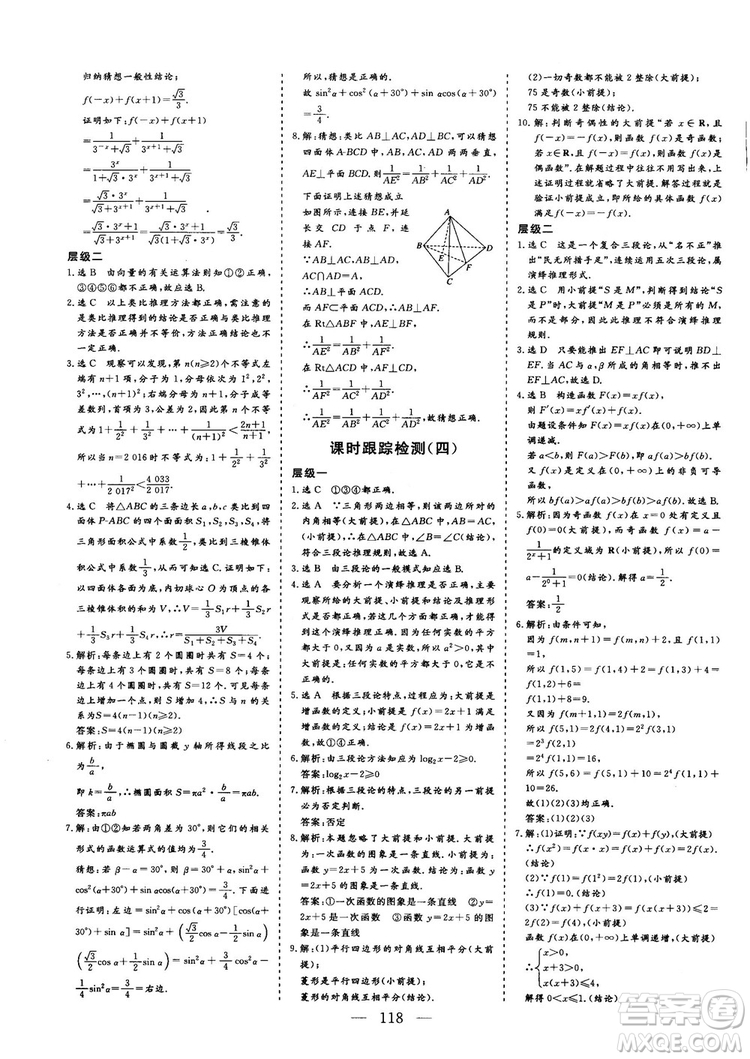 归纳猜想一般性结论：
f(-x)+f(x+1)=√3/3.
证明如下：f(-x)+f(x+1)
=1/(3^(-x)+√3)+1/(3^(x+1)+√3)
=3^x/(1+√3·3^x)+1/(3^(x+1)+√3)
=√3·3^x/(√3+3^(x+1))+1/(3^(x+1)+√3)
=(√3·3^x+1)/(√3+3^(x+1))=(√3·3^x+1)/(√3(1+√3·3^x))=√3/3.
层级二
1.选B 由向量的有关运算法则知①②正确，
③④⑤⑥都不正确，故应选B.
2.选C 以上类比推理方法都正确，需注意的
是类比推理得到的结论是否正确与类比推理
方法是否正确并不等价，方法正确结论也不
一定正确.
3.选C 观察可以发现，第n(n≥2)个不等式左
端有n+1项，分子为1，分母依次为1²，2²，
3²，…，(n+1)²；右端分母为n+1，分子成等
差数列，首项为3，公差为2，因此第n个不等
式为1+1/2²+1/3²+…+1/(n+1)²<(2n+1)/(n+1)，
所以当n=2 016时不等式为：1+1/2²+1/3²
+…+1/2 017²<4 033/2 017.
4.选C 将△ABC的三条边长a,b,c类比到四
面体P-ABC的四个面面积S₁,S₂,S₃,S₄，将
三角形面积公式中系数1/2，类比到三棱锥体
积公式中系数1/3，从而可知选C.证明如下：
以四面体各面为底，内切球心O为顶点的各
三棱锥体积的和为V，∴V=1/3S₁r+1/3S₂r
+1/3S₃r+1/3S₄r，∴r=3V/(S₁+S₂+S₃+S₄).
5.解析：每条边上有2个圆圈时共有S=4个；
每条边上有3个圆圈时，共有S=8个；每条边
上有4个圆圈时，共有S=12个.可见每条边上
增加一个点，则S增加4，∴S与n的关系
为S=4(n-1)(n≥2).
答案：S=4(n-1)(n≥2)
6.解析：由于椭圆与圆截y轴所得线段之比
为b/a，
即k=b/a，∴椭圆面积S=πa²·b/a=πab.
答案：πab
7.解：由①②知若两角差为30°，则它们的相关
形式的函数运算式的值均为3/4.
猜想：若β-α=30°，则β=30°+α，sin²α+
cos²(α+30°)+sin αcos(α+30°)=3/4.
进行证明：左边=sin²α+cos(α+30°)[cos(α+
30°)+sin α]=sin²α+(√3/2cos α-1/2sin α)·
(√3/2cos α+1/2sin α)=sin²α+3/4cos²α
-1/4sin²α=3/4=右边.
所以，猜想是正确的.
故sin²α+cos²(α+30°)+sin αcos(α+30°)=
3/4.
8.解：猜想：类比AB⊥AC，AD⊥BC，可以猜想
四面体A-BCD中，AB，AC，AD两两垂直，
AE⊥平面BCD.则1/AE²=1/AB²+1/AC²+1/AD².
下面证明上述猜想成立
如图所示，连接BE，并延
长交CD于点F，连接
AF.
∵AB⊥AC，AB⊥AD，
AC∩AD=A，
∴AB⊥平面ACD.
而AF⊂平面ACD，∴AB⊥AF.
在Rt△ABF中，AE⊥BF，
∴1/AE²=1/AB²+1/AF².
在Rt△ACD中，AF⊥CD，
∴1/AF²=1/AC²+1/AD².
∴1/AE²=1/AB²+1/AC²+1/AD²，故猜想正确.
A
B
C
D
E
F
课时跟踪检测(四)
层级一
1.选C ①③④都正确.
2.选A ∵三角形两边相等，则该两边所对的
内角相等(大前提)，在△ABC中，AB=AC，
(小前提)∴在△ABC中，∠B=∠C(结论)，
符合三段论推理规则，故选A.
3.选B 由三段论的一般模式知应选B.
4.选A 要分析一个演绎推理是否正确，主要
观察所给的大前提、小前提和结论及推理形
式是否都正确，若这几个方面都正确，才能得
到这个演绎推理正确.因为任何实数的平方
都大于0，又因为a是实数，所以a²>0，其中
大前提是：任何实数的平方大于0，它是不正
确的.
5.选A 根据三段论特点，过程应为：大前提是
增函数的定义；小前提是f(x)=2x+1满足
增函数的定义；结论是f(x)=2x+1为增函
数，故①④正确.
6.解析：由三段论方法知应为log₂x-2≥0.
答案：log₂x-2≥0
7.解析：在三段论的特点，三段论的大前提若
为否定判断，小前提为肯定判断，则结论必
为否定判断.
答案：否定
8.解析：本题忽略了大前提和小前提.大前提
为：一次函数的图象是一条直线.小前提为：
函数y=2x+5为一次函数.结论为：函数y
=2x+5的图象是一条直线.
答案：①一次函数的图象是一条直线 ②y=
2x+5是一次函数 ③函数y=2x+5的图
象是一条直线
9.解：(1)平行四边形的对角线互相平分(大前
提)，
菱形是平行四边形(小前提)，
菱形的对角线互相平分(结论).
(2)一切奇数都不能被2整除(大前提)
75是奇数(小前提)
75不能被2整除(结论)
10.解：判断奇偶性的大前提“若x∈R，且
f(-x)=-f(x)，则函数f(x)是奇函数；若
x∈R，且f(-x)=f(x)，则函数f(x)是
偶函数”.在解题过程中往往不用写出来，上
述证明过程就省略了大前提.解答过程就是
验证小前提成立，即所给的具体函数f(x)
满足f(-x)=f(x).
层级二
1.选C 这是一个复合三段论，从“名不正”推
出“民无所措手足”，连续运用五次三段论，
属演绎推理形式.
2.选C 用小前提“S是M”，判断得到结论“S
是P”时，大前提“M是P”必须是所有的M，
而不是部分，因此此推理不符合演绎推理
规则.
3.选D 只要能推出EF⊥AC即可说明BD⊥
EF.当AC与α，β所成的角相等时，推不出
EF⊥AC，故选D.
4.选A 构造函数F(x)=xf(x)，
则F′(x)=xf′(x)+f(x).
由题设条件知F(x)=xf(x)在(0，+∞)上单
调递减.
若a<b，则F(a)>F(b)，即af(a)>bf(b).
又f(x)是定义在(0，+∞)上的非负可导
函数，
所以bf(a)>af(a)>bf(b)>af(b).故选B.
5.解析：因为奇函数f(x)在x=0处有定义且
f(0)=0(大前提)，而奇函数f(x)=a-
1/(2^x+1)的定义域为R(小前提)，所以f(0)=
a-1/(2⁰+1)=0(结论).解得a=1/2.
答案：1/2
6.解析：由条件可知，
因为f(m,n+1)=f(m,n)+2，且f(1,1)=1，
所以f(1,5)=f(1,4)+2=f(1,3)+4=
f(1,2)+6=
f(1,1)+8=9.
又因为f(m+1,1)=2f(m,1)，
所以f(5,1)=2f(4,1)=2²f(3,1)
=2³f(2,1)
=2⁴f(1,1)=16，
所以f(5,6)=f(5,1)+10=2⁴f(1,1)+10
=26.
故(1)(2)(3)均正确.
答案：(1)(2)(3)
7.解：(1)证明：∵f(xy)=f(x)+f(y)，(大前提)
∴f(x²)=f(x·x)=f(x)+f(x)=2f(x).
(结论)
(2)∵f(1)=f(1²)=2f(1)，(小前提)
∴f(1)=0.(结论)
(3)∵f(x)+f(x+3)=f(x(x+3))≤1=
2f(2)=f(4)，(小前提)
函数f(x)在(0，+∞)上单调递增，(大前提)
∴{x>0，x+3>0，x(x+3)≤4，
解得0<x≤1.(结论)
118
答案圈